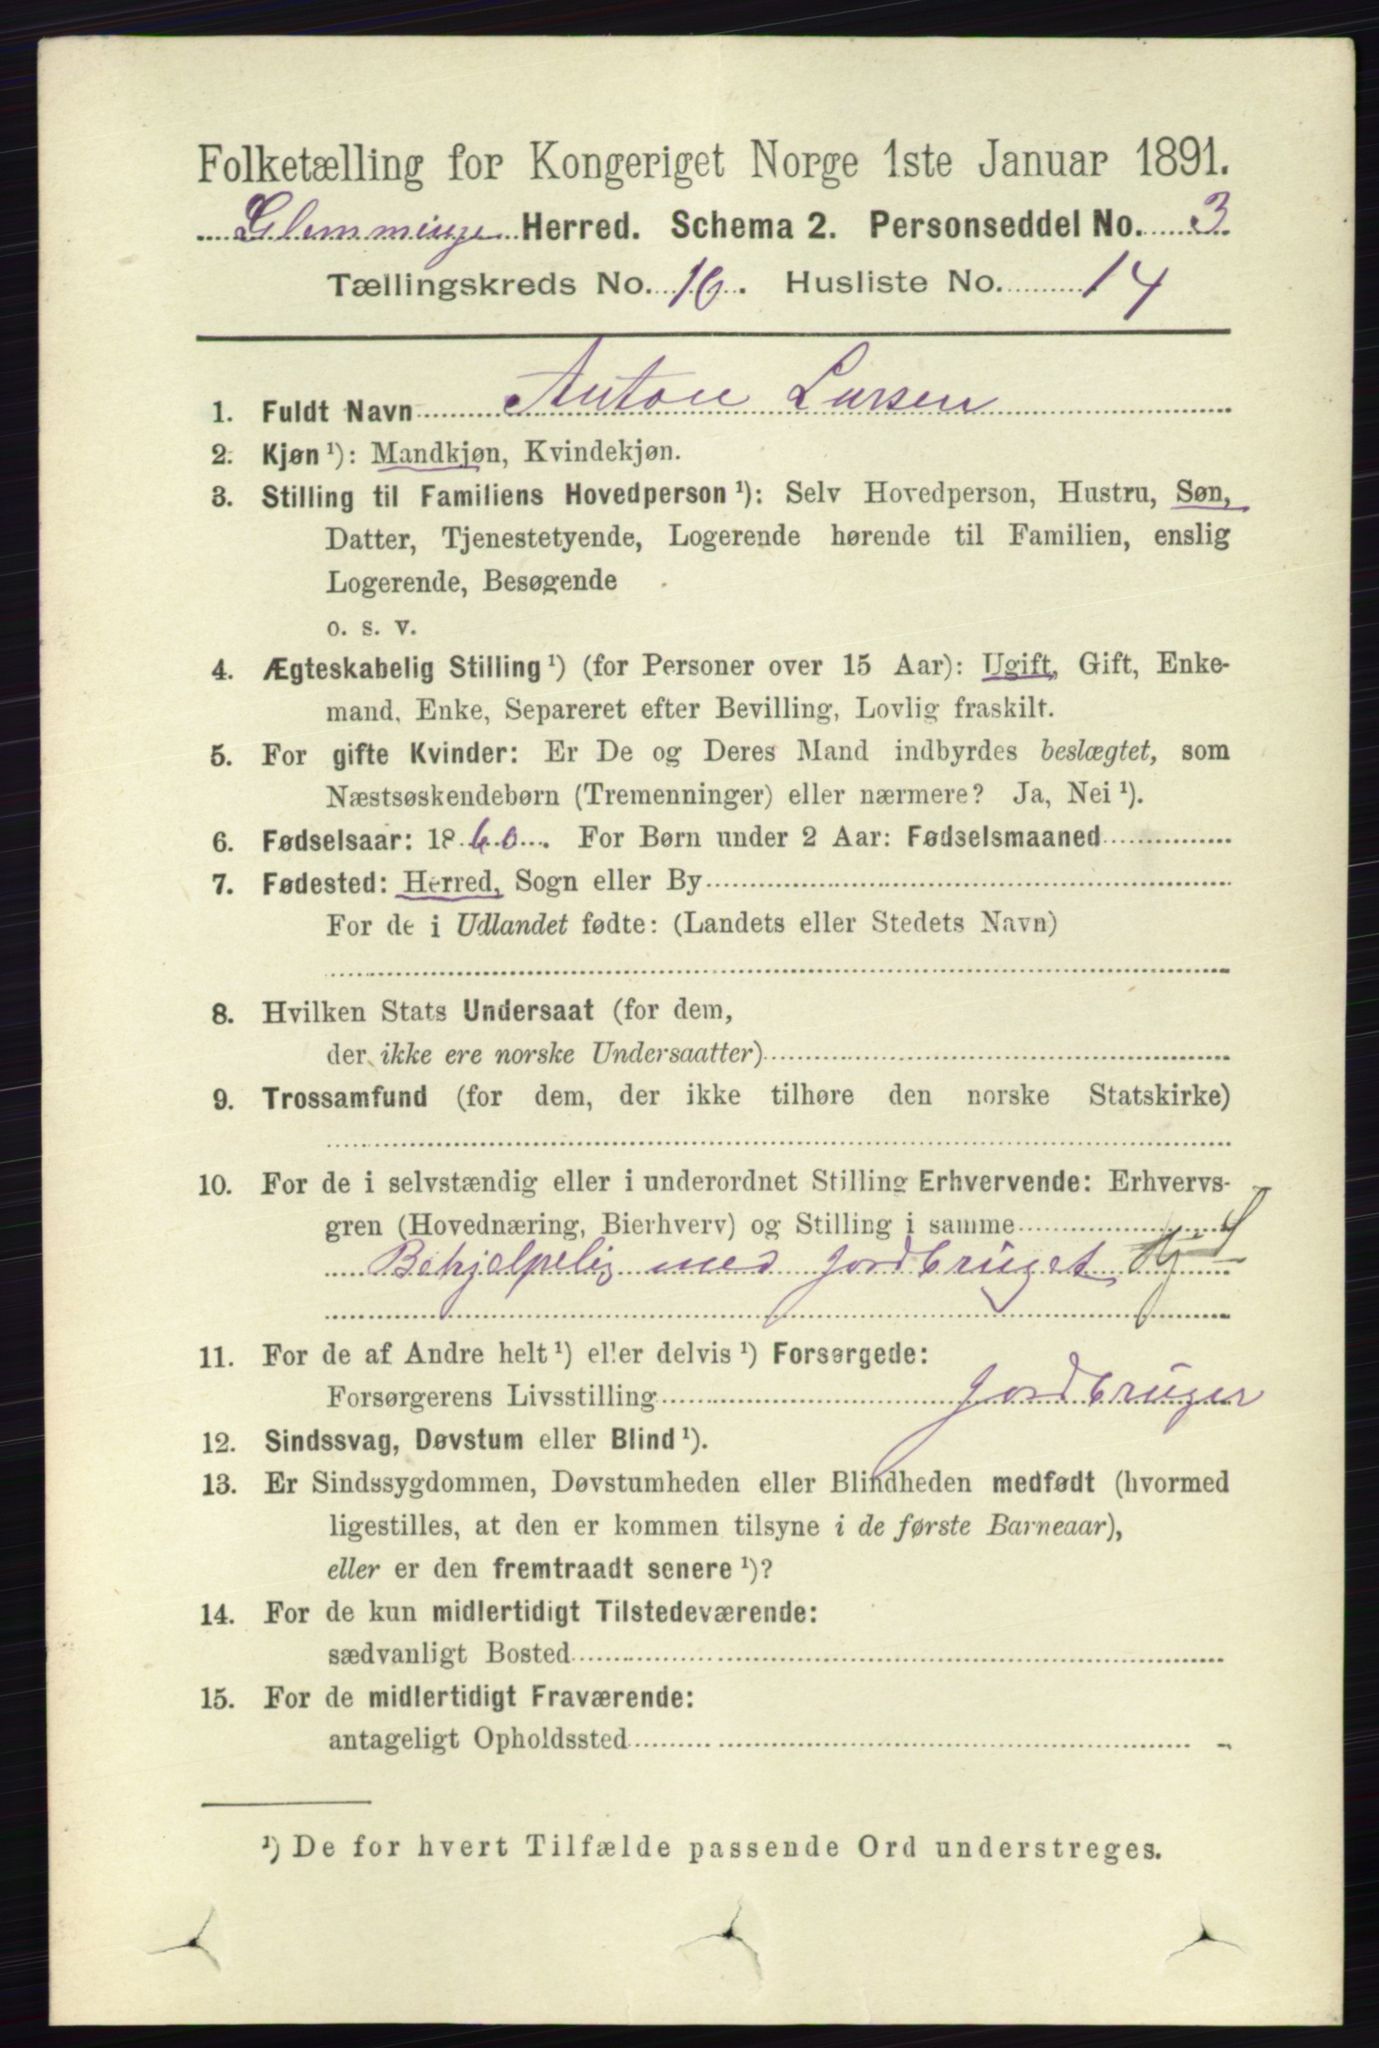 Folketælling for Kongeriget Norge 1ste Januar 1891.
Glemminge Herred. Schema 2. Personseddel No. 3
Tællingskreds No. 16. Husliste No. 14
1. Fuldt Navn Anton Larsen
2. Kjøn ¹): Mandkjøn, Kvindekjøn.
3. Stilling til Familiens Hovedperson ¹): Selv Hovedperson, Hustru, Søn,
Datter, Tjenestetyende, Logerende hørende til Familien, enslig
Logerende, Besøgende
o. s. v.
4. Ægteskabelig Stilling ¹) (for Personer over 15 Aar): Ugift, Gift, Enke-
mand, Enke, Separeret efter Bevilling, Lovlig fraskilt.
5. For gifte Kvinder: Er De og Deres Mand indbyrdes beslægtet, som
Næstsøskendebørn (Tremenninger) eller nærmere? Ja, Nei ¹).
6. Fødselsaar: 1860. For Børn under 2 Aar: Fødselsmaaned
7. Fødested: Herred, Sogn eller By
For de i Udlandet fødte: (Landets eller Stedets Navn)
8. Hvilken Stats Undersaat (for dem,
der ikke ere norske Undersaatter)
9. Trossamfund (for dem, der ikke tilhøre den norske Statskirke)
10. For de i selvstændig eller i underordnet Stilling Erhvervende: Erhvervs-
gren (Hovednæring, Bierhverv) og Stilling i samme
Behjelpelig med jordbruget
11. For de af Andre helt ¹) eller delvis ¹) Forsørgede:
Forsørgerens Livsstilling Jordbruger
12. Sindssvag, Døvstum eller Blind ¹).
13. Er Sindssygdommen, Døvstumheden eller Blindheden medfødt (hvormed
ligestilles, at den er kommen tilsyne i de første Barneaar),
eller er den fremtraadt senere ¹)?
14. For de kun midlertidigt Tilstedeværende:
sædvanligt Bosted
15. For de midlertidigt Fraværende:
antageligt Opholdssted
¹) De for hvert Tilfælde passende Ord understreges.